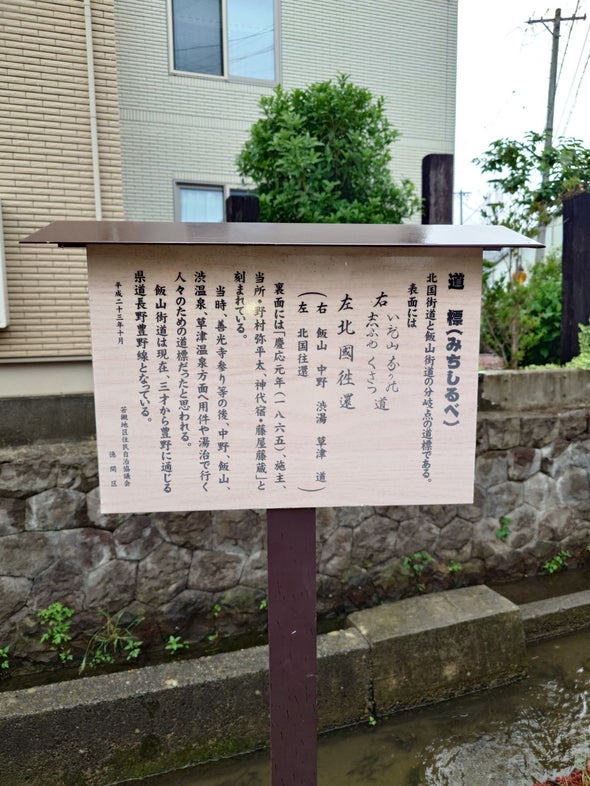 道 標(みちしるべ)
北国街道と飯山街道の分岐点の道標である。
表面には
右 い飛山 奈可能 道
志ふゆ くさつ
左 北國徃還
(右 飯山 中野 渋湯 草津 道)
(左 北国往還)
裏面には「慶応元年(一八六五)、施主、
当所・野村弥平太、神代宿・藤屋藤蔵」と
刻まれている。
当時、善光寺参り等の後、中野、飯山、
渋温泉、草津温泉方面へ用件や湯治で行く
人々のための道標だったと思われる。
飯山街道は現在、三才から豊野に通じる
県道長野豊野線となっている。
平成二十三年十月
若槻地区住民自治協議会
徳間区